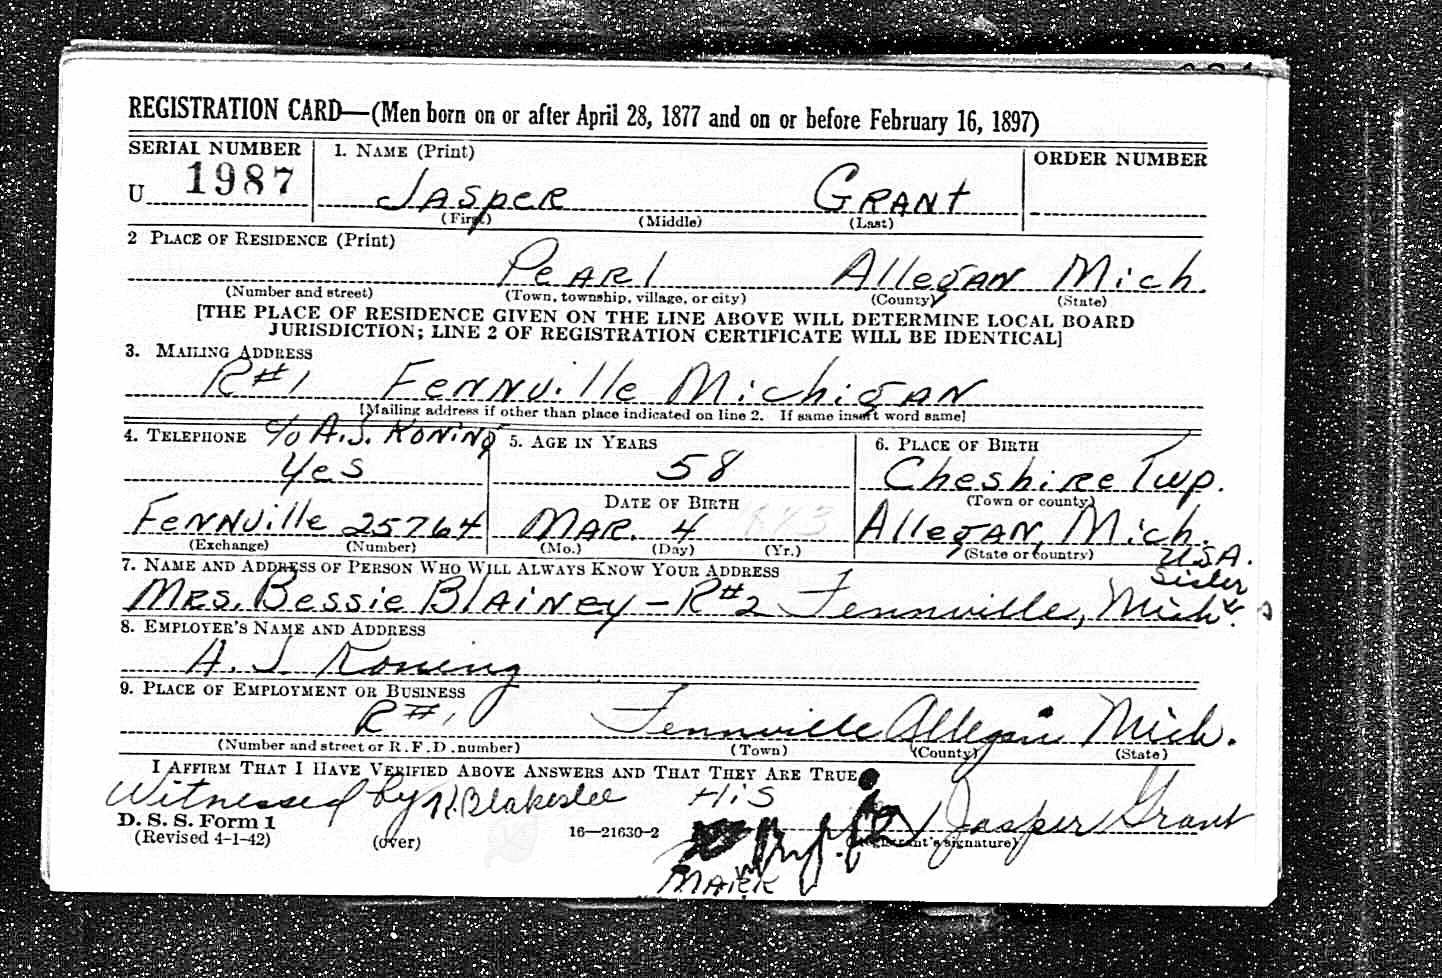 REGISTRATION CARD—(Men born on or after April 28, 1877 and on or before February 16, 1897)
SERIAL NUMBER 1. NAME (Print) ORDER NUMBER
U 1987 JASPER GRANT
(First) (Middle) (Last)
2 PLACE OF RESIDENCE (Print)
PEARl AllegAN Mich.
(Number and street) (Town, township, village, or city) (County) (State)
[THE PLACE OF RESIDENCE GIVEN ON THE LINE ABOVE WILL DETERMINE LOCAL BOARD
JURISDICTION; LINE 2 OF REGISTRATION CERTIFICATE WILL BE IDENTICAL]
3. MAILING ADDRESS
R#1 FENNville MichigAN
[Mailing address if other than place indicated on line 2. If same insert word same]
c/o A.J. KONiNg
4. TELEPHONE 5. AGE IN YEARS 6. PLACE OF BIRTH
Yes 58 Cheshire Twp.
DATE OF BIRTH (Town or county)
FENNville 25764 MAR. 4 AllegAN, Mich.
(Exchange) (Number) (Mo.) (Day) (Yr.) (State or country) USA.
7. NAME AND ADDRESS OF PERSON WHO WILL ALWAYS KNOW YOUR ADDRESS Sister
MRS. Bessie BlAiNey – R#2 Fennville, Mich.
8. EMPLOYER'S NAME AND ADDRESS
A. J. Koning
9. PLACE OF EMPLOYMENT OR BUSINESS
R#1 Fennville Allegan Mich.
(Number and street or R. F. D. number) (Town) (County) (State)
I AFFIRM THAT I HAVE VERIFIED ABOVE ANSWERS AND THAT THEY ARE TRUE.
Witnessed by Blakeslee His Jasper Grant
D. S. S. Form 1
(Revised 4-1-42) (over) 16—21630-2 (Registrant's signature)
MARK